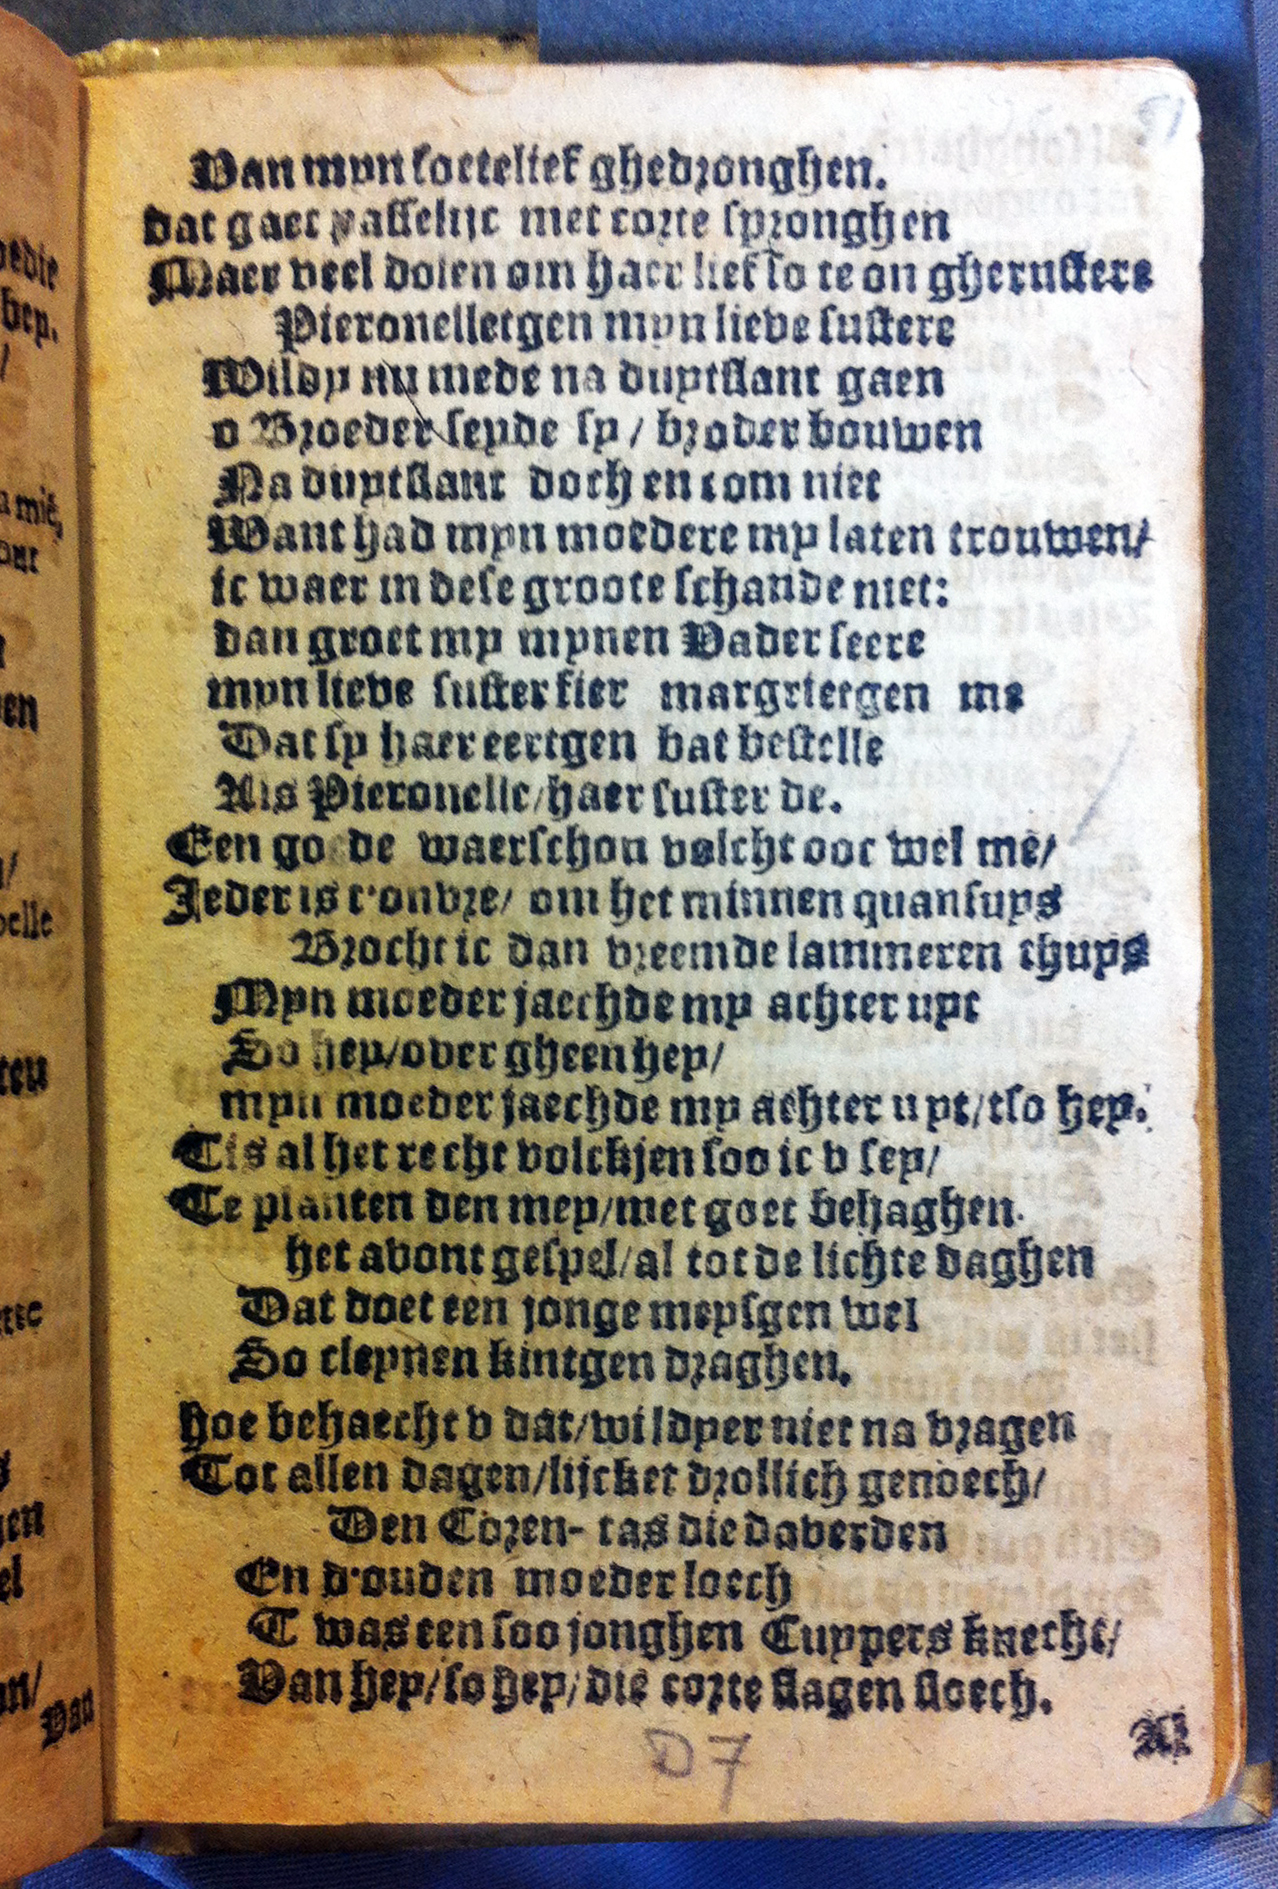 51
Van myn soetelief ghedronghen.
dat gaet passelijc met corte spronghen
Maer veel dolen om haer lief so te on gherustere
Pieronelletgen myn lieve sustere
Wildy nu mede na duytslant gaen
o Broeder seyde sy / broder bouwen
Na duytslant doch en com niet
Want had myn moedere my laten trouwen/
ic waer in dese groote schande niet:
dan groet my mynen Vader seere
myn lieve suster fier margrietgen me
Dat sy haer eertgen bat bestelle
Als Pieronelle/haer suster de.
Een goede waerschou volcht ooc wel mē/
Jeder is t'onvre/ om het minnen quansuys
Brocht ic dan vreemde lammeren thuys
Myn moeder jaechde my achter uyt
So hey/over gheen hey/
myn moeder jaechde my achter uyt/tso hey.
Tis al het recht volckjen soo ic v sey/
Te planten den mey/met goet behaghen.
het avont gespel/al tot de lichte daghen
Dat doet een jonge meysgen wel
So cleynen kintgen draghen.
hoe behaecht v dat/wildyer niet na vragen
Tot allen dagen/lijcket drollich genoech/
Den Coren- tas die daverden
En d'ouden moeder loech
T was een soo jonghen Cuypers knecht/
Van hey/so hey/die corte slagen sloech.
Al
D 7